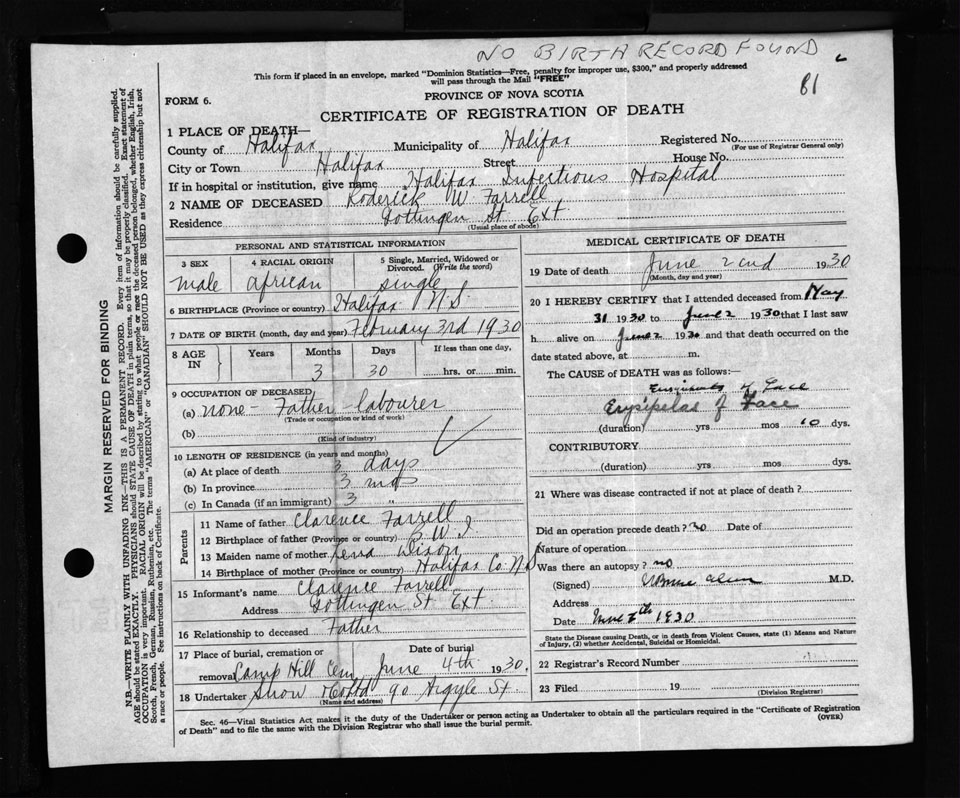 NO BIRTH RECORD FOUND
This form if placed in an envelope, marked "Dominion Statistics—Free, penalty for improper use, $300," and properly addressed
will pass through the Mail "FREE"
81
PROVINCE OF NOVA SCOTIA
FORM 6.
CERTIFICATE OF REGISTRATION OF DEATH
1 PLACE OF DEATH—
County of Halifax Municipality of Halifax Registered No.
(For use of Registrar General only)
City or Town Halifax Street House No.
If in hospital or institution, give name Halifax Infectious Hospital
2 NAME OF DECEASED Roderick W Farrell
Residence Gottingen St Ext
(Usual place of abode)
PERSONAL AND STATISTICAL INFORMATION
3 SEX 4 RACIAL ORIGIN 5 Single, Married, Widowed or
Divorced. (Write the word)
male african single
6 BIRTHPLACE (Province or country) Halifax N.S.
7 DATE OF BIRTH (month, day and year) February 3rd 1930
8 AGE IN Years Months Days If less than one day,
3 30 hrs. or min.
9 OCCUPATION OF DECEASED
(a) none - Father - labourer
(Trade or occupation or kind of work)
(b)
(Kind of industry)
10 LENGTH OF RESIDENCE (in years and months)
(a) At place of death 3 days
(b) In province 3 mos
(c) In Canada (if an immigrant) 3 "
Parents
11 Name of father Clarence Farrell
12 Birthplace of father (Province or country) B. W. I
13 Maiden name of mother Lena Dixon
14 Birthplace of mother (Province or country) Halifax Co. N.S
15 Informant's name Clarence Farrell
Address Gottingen St Ext.
16 Relationship to deceased Father
17 Place of burial, cremation or Date of burial
removal Camp Hill Cem June 4th 1930.
18 Undertaker Snow 90 Argyle St.
(Name and address)
MEDICAL CERTIFICATE OF DEATH
19 Date of death June 2nd 1930
(Month, day and year)
20 I HEREBY CERTIFY that I attended deceased from May
31 1930 to June 2 1930 that I last saw
h alive on June 2 1930 and that death occurred on the
date stated above, at m.
The CAUSE of DEATH was as follows:—
Erysipelas of Face
Erysipelas of Face
(duration) yrs mos 10 dys.
CONTRIBUTORY
(duration) yrs. mos. dys.
21 Where was disease contracted if not at place of death?
Did an operation precede death? no Date of
Nature of operation
Was there an autopsy? no
(Signed) M.D.
Address
Date June 7th 1930
State the Disease causing Death, or in death from Violent Causes, state (1) Means and Nature
of Injury, (2) whether Accidental, Suicidal or Homicidal.
22 Registrar's Record Number
23 Filed 19
(Division Registrar)
Sec. 46—Vital Statistics Act makes it the duty of the Undertaker or person acting as Undertaker to obtain all the particulars required in the "Certificate of Registration
of Death" and to file the same with the Division Registrar who shall issue the burial permit.
(OVER)
MARGIN RESERVED FOR BINDING
N.B.—WRITE PLAINLY WITH UNFADING INK—THIS IS A PERMANENT RECORD. Every item of information should be carefully supplied.
AGE should be stated EXACTLY. PHYSICIANS should STATE CAUSE OF DEATH in plain terms, so that it may be properly classified. Exact statement of
OCCUPATION is very important. RACIAL ORIGIN will be described by stating to what people or race the deceased person belonged, whether English, Irish,
Scotch, French, German, Russian, Ruthenian, etc. The terms "AMERICAN" or "CANADIAN" SHOULD NOT BE USED as they express citizenship but not
a race or people. See instructions on back of Certificate.